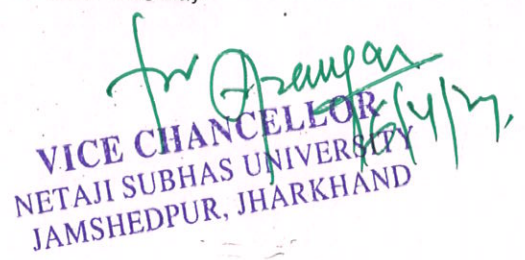 for
VICE CHANCELLOR
NETAJI SUBHAS UNIVERSITY
JAMSHEDPUR, JHARKHAND